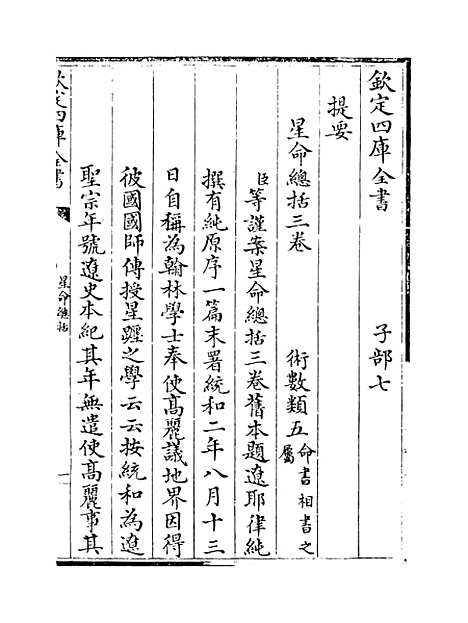 欽定四庫全書　子部七
提要
星命總括三卷　術數類五命書相書之屬
臣等謹案星命總括三卷舊本題遼耶律純
撰有純原序一篇末署統和二年八月十三
日自稱為翰林學士奉使高麗議地界因得
彼國國師傳授星躔之學云云按統和為遼
聖宗年號遼史本紀其年無遣使高麗事其
欽定四庫全書
星命總括
一